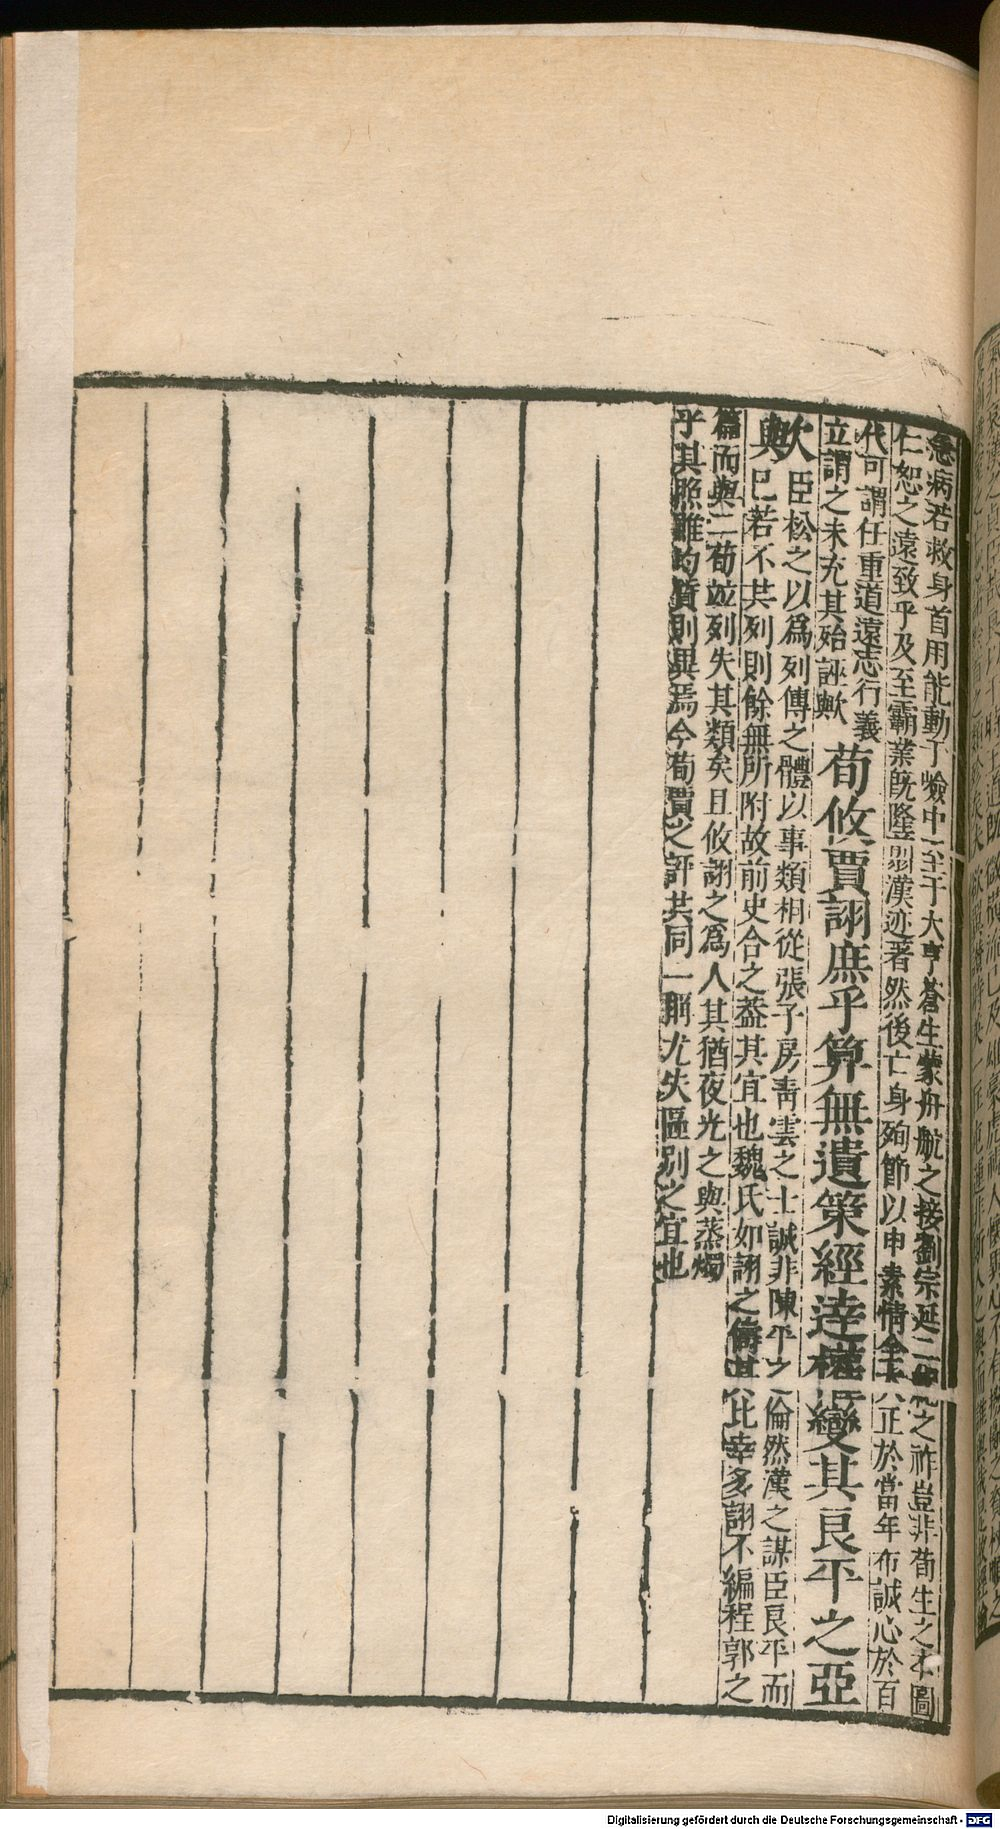 急病若救身首用能動于嶮中至于大亨蒼生蒙舟航之接劉宗延二紀之祚豈非荀生之本圖
仁恕之遠致乎及至霸業旣隆翦漢迹著然後亡身殉節以申素情全大正於當年布誠心於百
代可謂任重道遠志行義
立謂之未充其殆誣歟
荀攸賈詡庶乎算無遺策經達權變其良平之亞
歟
臣松之以爲列傳之體以事類相從張子房青雲之士誠非陳平之倫然漢之謀臣良平而
與
已若不共列則餘無所附故前史合之葢其宜也魏氏如詡之儔其比幸多詡不編程郭之
篇而與二荀竝列失其類矣且攸詡之爲人其猶夜光之與蒸燭
乎其照雖均質則異焉今荀賈之評共同一稱尤失區別之宜也
Digitalisierung gefördert durch die Deutsche Forschungsgemeinschaft - DFG